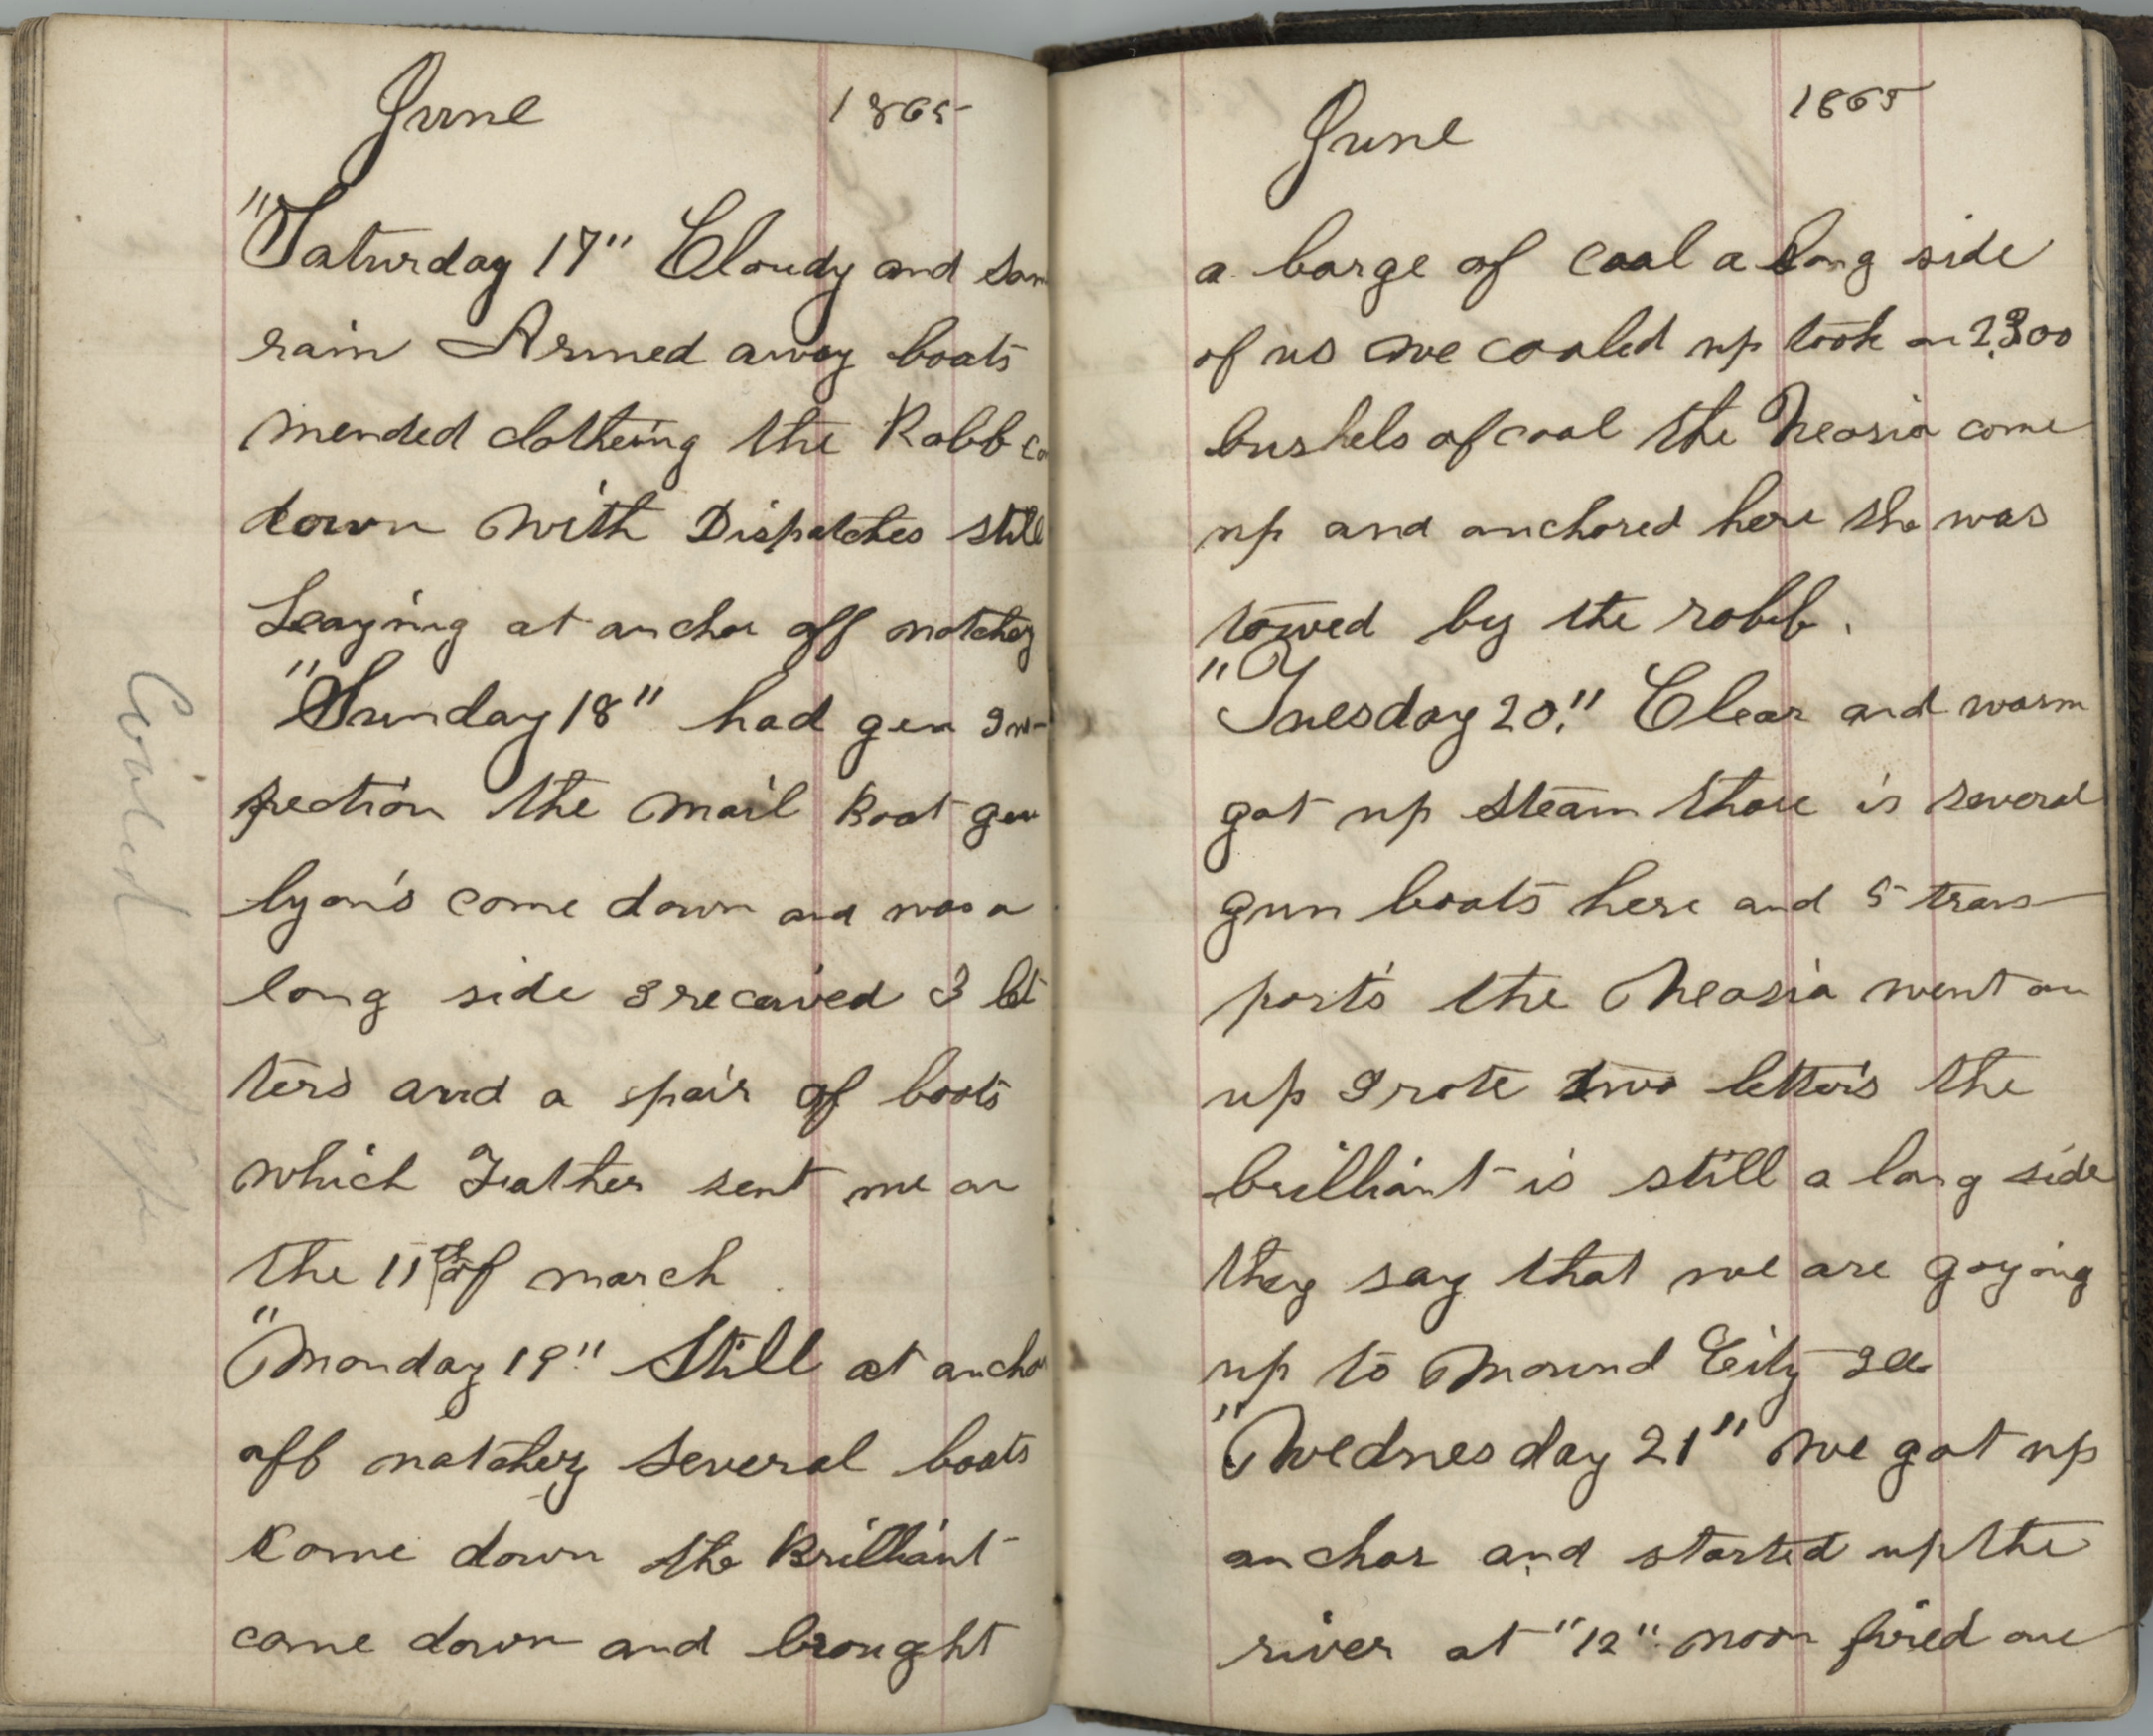 June 1865
"Saturday 17" Cloudy and som
rain Armed away boats
mended clotheing the Robb co
down with Dispatches still
Leaying at anchor off natchez
"Sunday 18" had gen Ins-
pection the mail Boat gen
lyon's come down and was a
long side I received 3 let
ters and a pair of boots
which Father sent me on
the 11th of march
"Monday 19." Still at ancho
off natchez several boats
come down the Brilliant
come down and brought
Coaled Ship
June 1865
a barge of coal a long side
of us we coaled up took on 2300
bushels of coal the Neosia come
up and anchored here she was
towed by the robb.
"Tuesday 20." Clear and warm
got up steam thare is several
gun boats here and 5 trans
ports the Neosia went on
up I rote two letters the
brilliant is still a long side
they say that we are goying
up to Mound City Ill
"Wednesday 21" we got up
anchor and started up the
river at "12" noon fired one